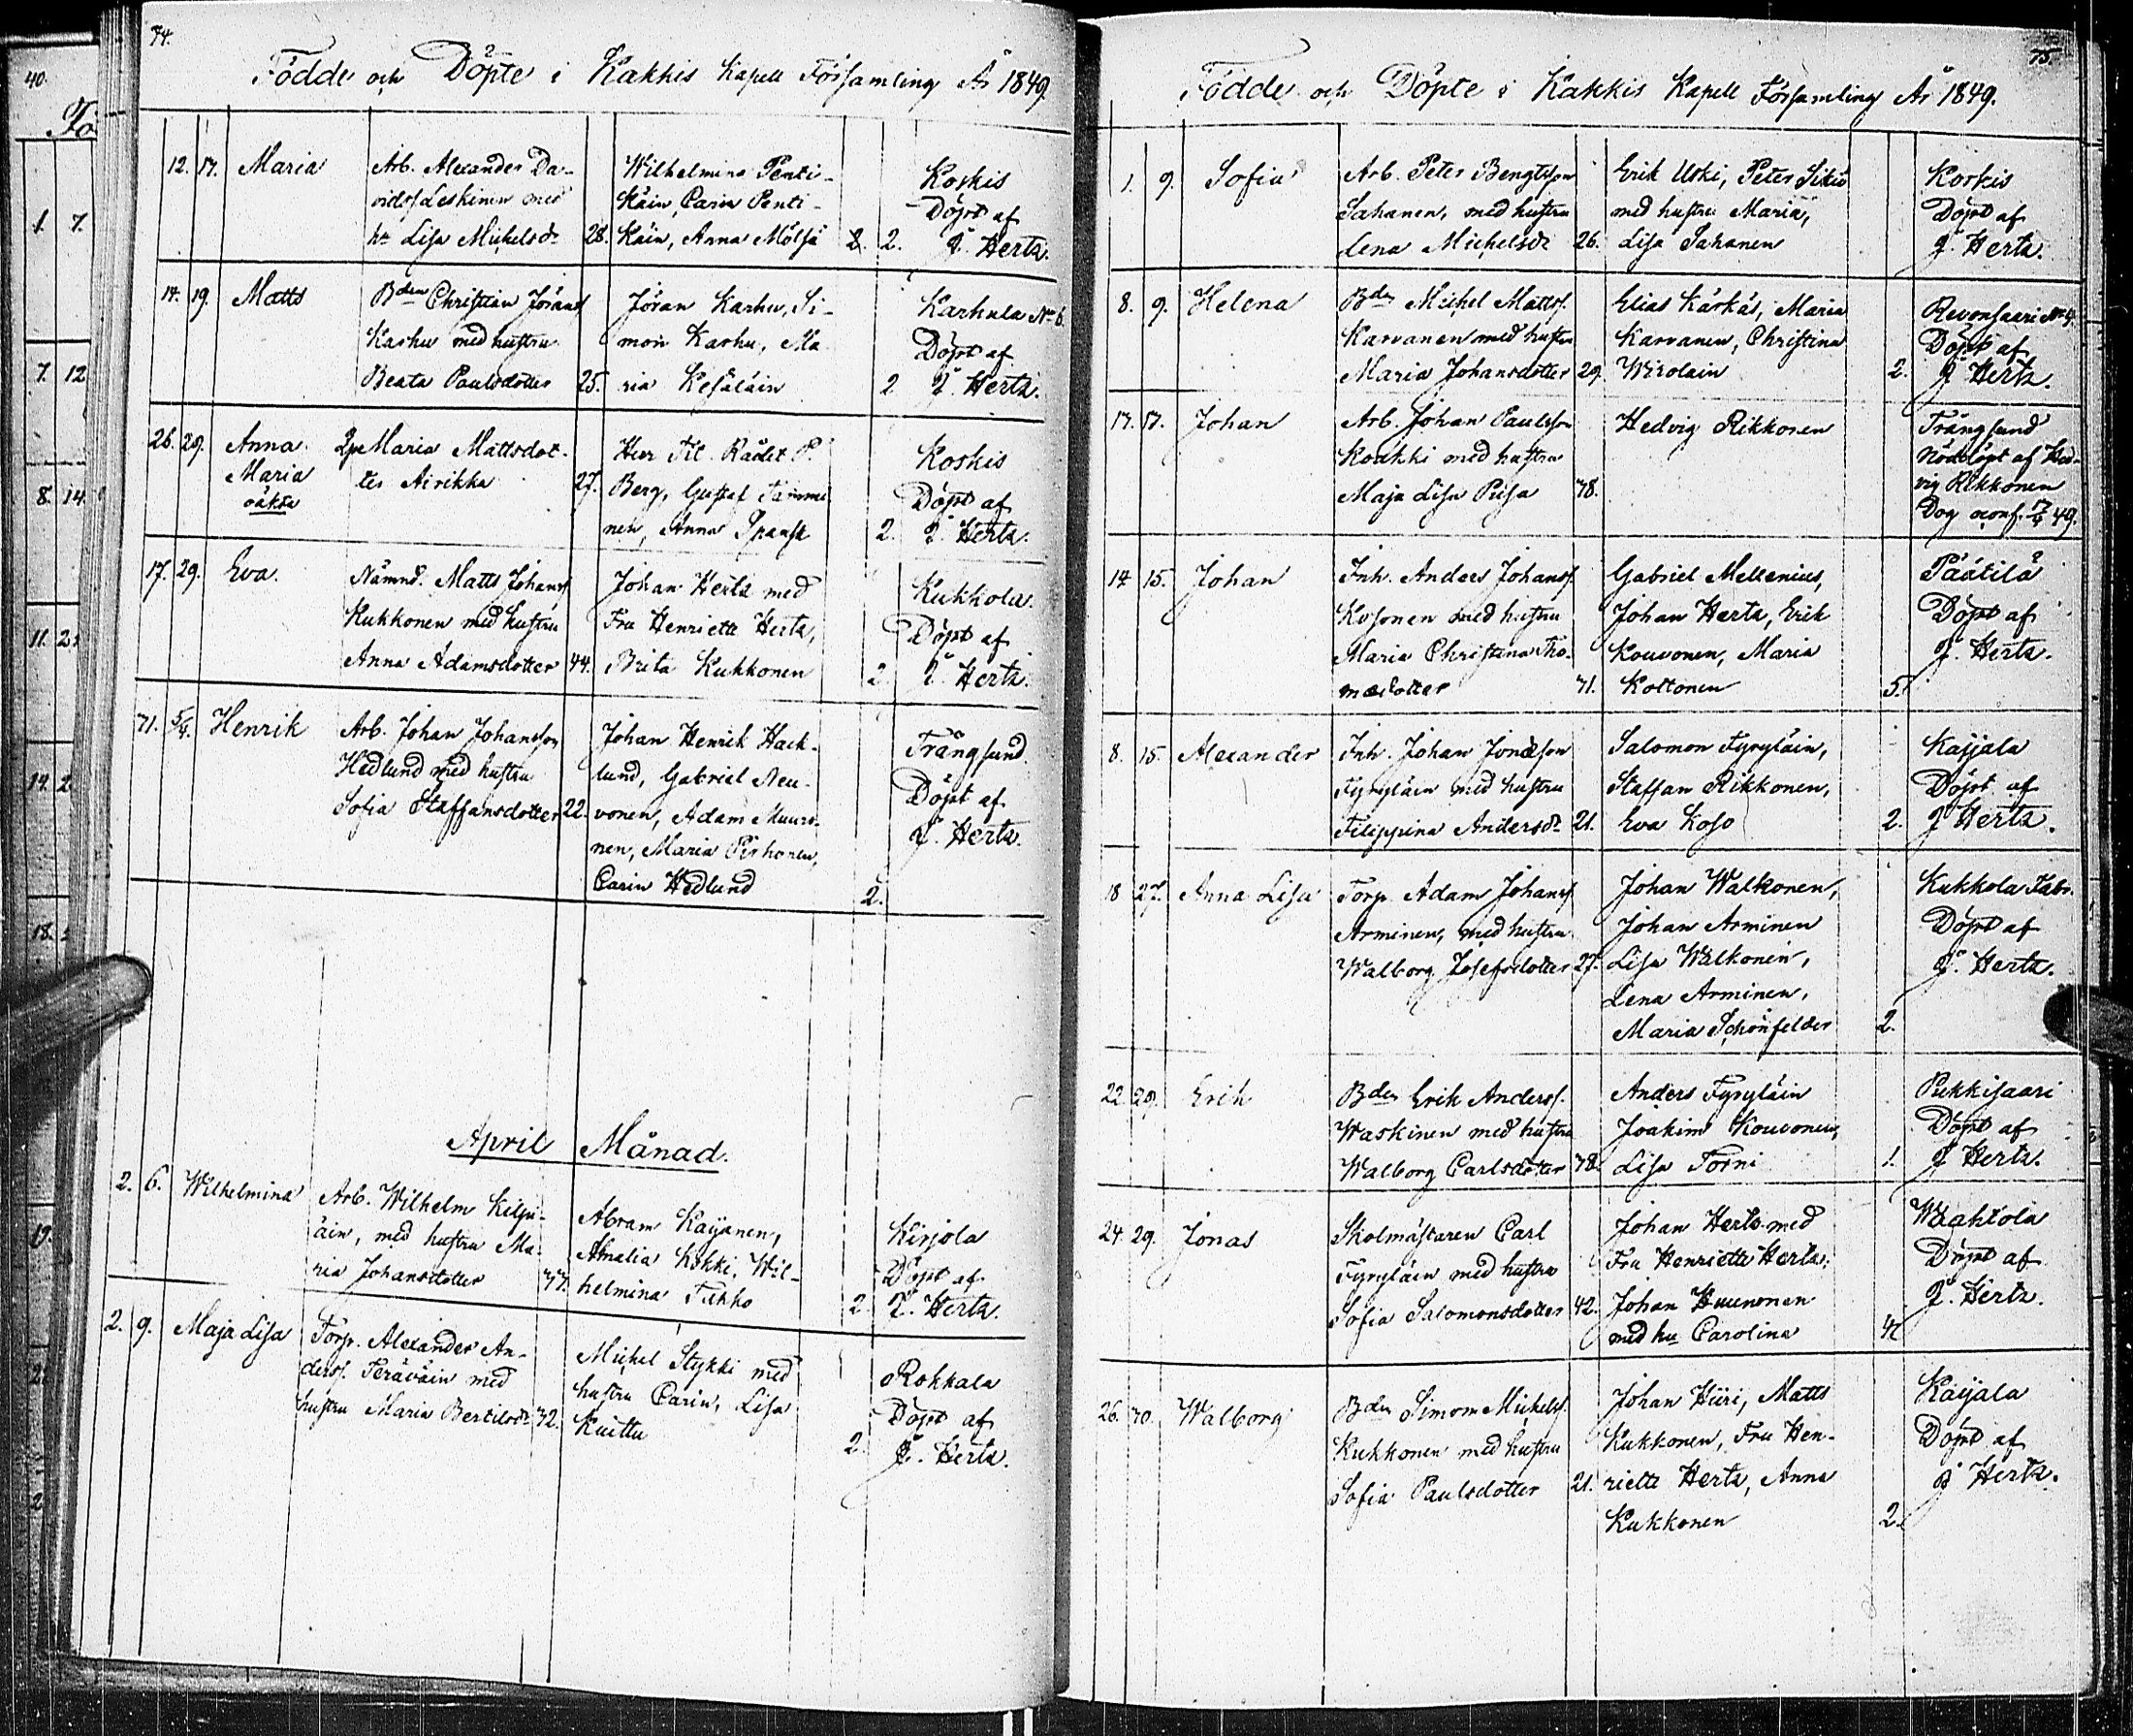 74.
Födde och Döpte i Kakkis Kapell Församling År 1849.
12. 17. Maria Arb. Alexander Da- Wilhelmina Penti- Koskis
vidss. Leskinen med käin, Carin Penti- Döpt af
hu Lisa Michelsdr 28. käin, Anna Mölsä 2. 2. J. Hertz.
14. 19. Matts Bden Christian Jöranss. Jöran Karhu, Si- Karhula No 6.
Karhu med hustru mon Karhu, Ma- Döpt af
Beata Paulsdotter 25. ria Kesäläin 2 J. Hertz.
26. 29. Anna Qpe Maria Mattsdot- Herr Tit. Rådet P. Koskis
Maria ter Airikka 27. Berg, Gustaf Tammi- Döpt af
oäkta nen, Anna Spansk 2. J. Hertz.
17. 29. Eva. Nämnd. Matts Johanss. Johan Hertz med Kukkola.
Kukkonen med hustru Fru Henriette Hertz, Döpt af
Anna Adamsdotter 44. Brita Kukkonen 2. J. Hertz.
31. 5/4. Henrik Arb. Johan Johansson Johan Henrik Hack- Trångsund.
Hedlund med hustru lund, Gabriel Neu- Döpt af
Sofia Staffansdotter 22. vonen, Adam Muuro- J. Hertz.
nen, Maria Pirhonen,
Carin Hedlund 2.
April Månad.
2. 6. Wilhelmina Arb. Wilhelm Kilpi- Abram Kaijanen, Kirjola
äin, med hustru Ma- Amalia Kokki, Wil- Döpt af
ria Johansdotter 37. helmina Tukko 2. J. Hertz.
2. 9. Maja Lisa Torp. Alexander An- Michel Stykki med Rokkala
derss. Teräväin med hustru Carin, Lisa Döpt af
hustru Maria Bertilsdr 32. Kuittu 2. J. Hertz.
75.
Födde och Döpte i Kakkis Kapell Församling År 1849.
1. 9. Sofia Arb. Peter Bengtsson Erik Uski, Peter Sikiö Koskis
Sahanen, med hustru med hustru Maria, Döpt af
Lena Michelsdr 26. Lisa Sahanen J. Hertz.
8. 9. Helena Bden Michel Mattss. Elias Kärkäs, Maria Revonsaari No 4.
Karvanen med hustru Karvanen, Christina Döpt af
Maria Johansdotter 29. Wirolain 2. J. Hertz.
13. 17. Johan Arb. Johan Paulsson Hedvig Rikkonen Trångsund
Koukki med hustru Nöddöpt af Hed-
Maja Lisa Pusa 38. vig Rikkonen
Dog 17/4 49.
14 15. Johan Inh. Anders Johanss. Gabriel Mellenius, Päätilä
Kosonen med hustru Johan Hertz, Erik Döpt af
Maria Christina Tho- Kouvonen, Maria J. Hertz.
masdotter 31. Koltonen 5.
8. 15. Alexander Inh. Johan Jonasson Salomon Fyryläin, Kaijala
Fyryläin med hustru Staffan Rikkonen, Döpt af
Filippina Andersdr 21. Eva Koso 2. J Hertz.
18 27. Anna Lisa Torp. Adam Johanss. Johan Walkonen, Kukkola Fabr.
Arminen, med hustru Johan Arminen Döpt af
Walborg Josefsdotter 27. Lisa Walkonen, J. Hertz.
Lena Arminen,
Maria Schönfelder 2.
22. 29. Erik Bden Erik Anderss. Anders Fyryläin Pukkisaari
Waskinen med hustru Joakim Kouvonen, Döpt af
Walborg Carlsdotter 38. Lisa Torni 1. J Hertz.
24. 29. Jonas Skolmästaren Carl Johan Hertz med Waahtola
Fyryläin med hustru Fru Henriette Hertz, Döpt af
Sofia Salomonsdotter 42. Johan Huunonen J. Hertz.
med hu Carolina 4.
26. 30. Walborg Bden Simon Michelss. Johan Hiiri, Matts Kaijala
Kukkonen med hustru Kukkonen, Fru Hen- Döpt af
Sofia Paulsdotter 21. riette Hertz, Anna J Hertz.
Kukkonen 2.